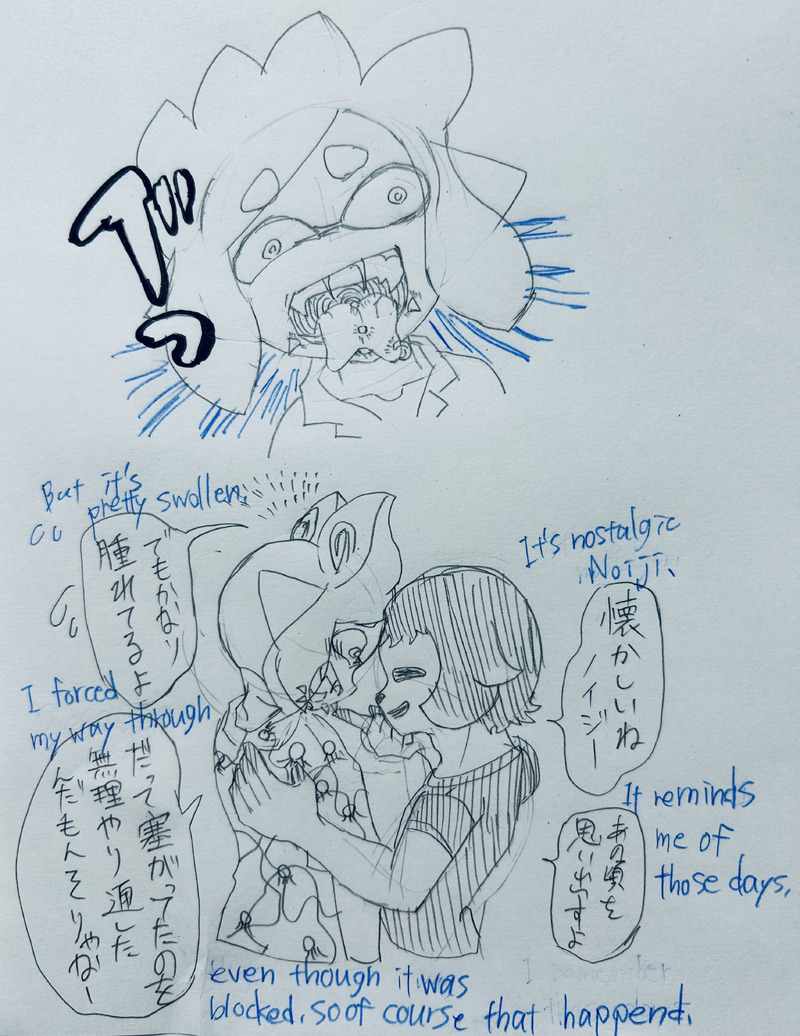 But it's
pretty swollen.
でもかなり
腫れてるよ
It's nostalgic
Noiji、
懐かしいね
ノイジー
I forced
my way through
だって塞がってたのを
無理やり通した
んだもんそりゃなー
It reminds
me of
those days.
あの頃を
思い出すよ
even though it was
blocked. so of course that happend.
I remember